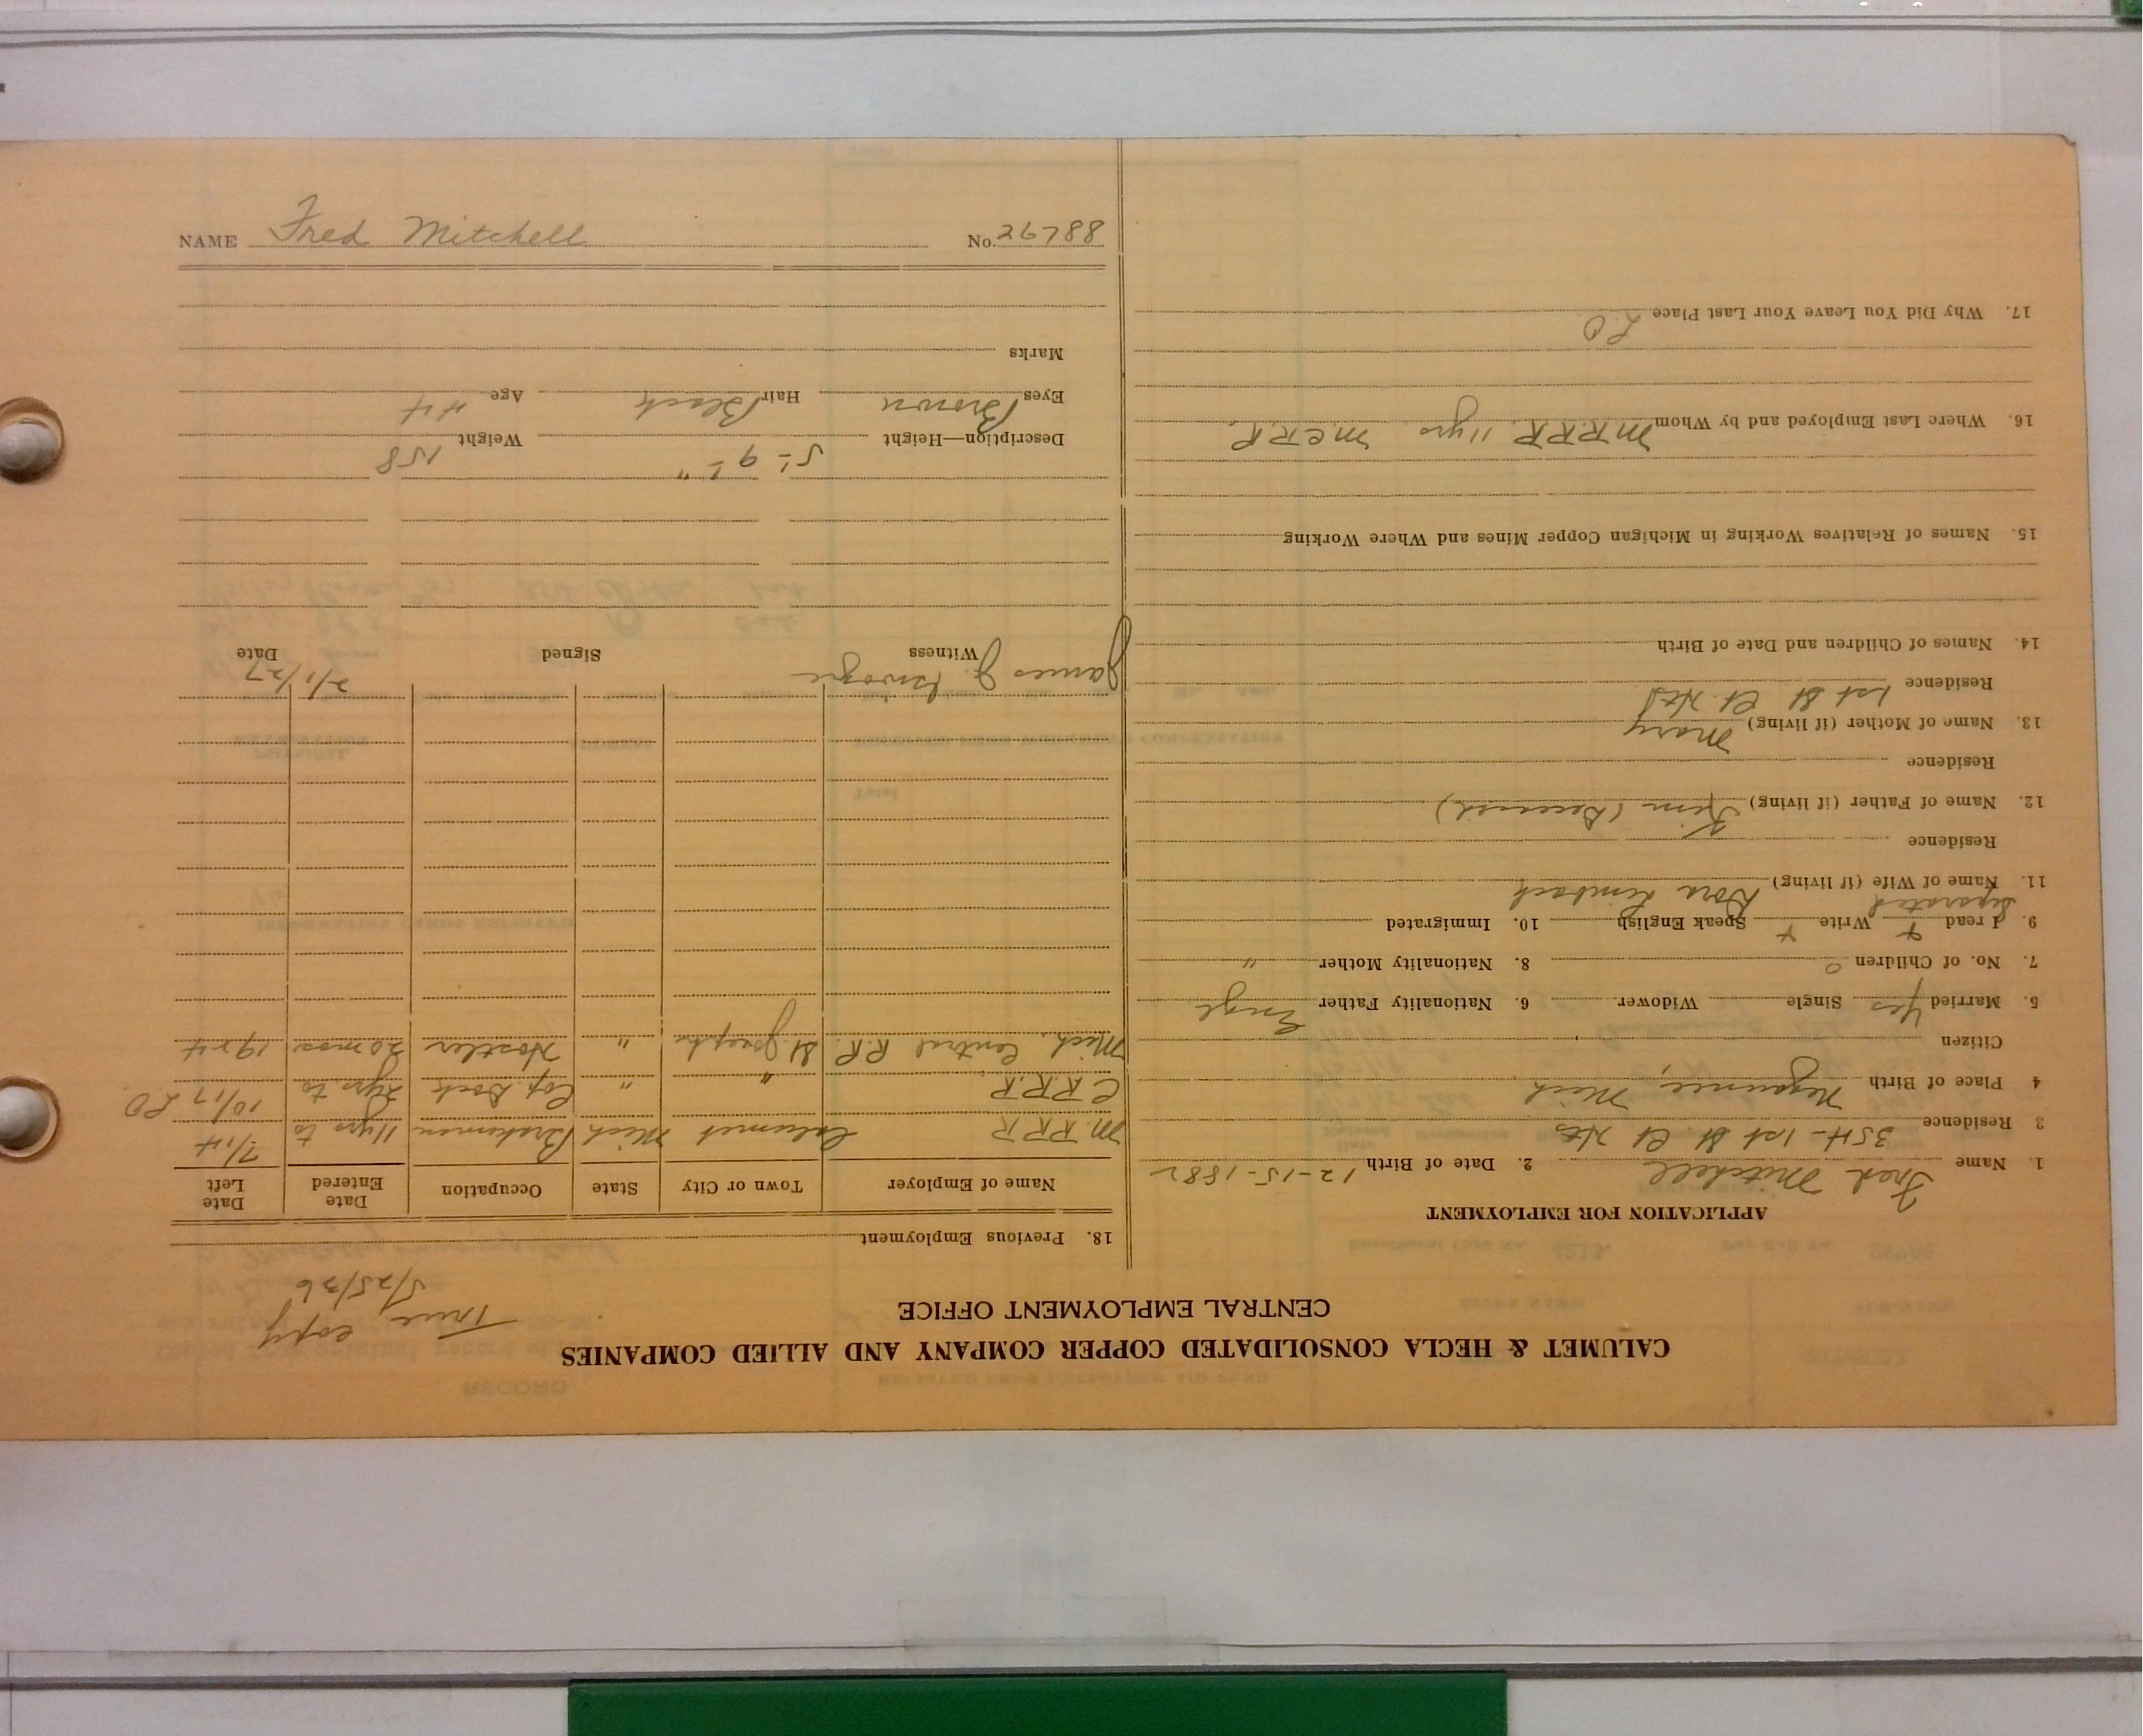 NAME Fred Mitchell No. 26788
CALUMET & HECLA CONSOLIDATED COPPER COMPANY AND ALLIED COMPANIES
CENTRAL EMPLOYMENT OFFICE
True copy
5/25/36
APPLICATION FOR EMPLOYMENT
1. Name Fred Mitchell 2. Date of Birth 12-15-1882
3 Residence 354-1st St. Ct Hts
4 Place of Birth Negaunee, Mich
Citizen
5. Married Yes Single Widower 6. Nationality Father Engl
7. No. of Children 0 8. Nationality Mother "
9. I read + Write + Speak English 10. Immigrated
Separated
11. Name of Wife (if living) Dora
Residence
12. Name of Father (if living) (Deceased)
Residence
13. Name of Mother (if living) Mary
Residence 1st St Ct. Hts
14. Names of Children and Date of Birth
15. Names of Relatives Working in Michigan Copper Mines and Where Working
16. Where Last Employed and by Whom M.R.R.R. 11yrs. M C R.R.
17. Why Did You Leave Your Last Place L O
18. Previous Employment
Name of Employer Town or City State Occupation Date Entered Date Left
M.R.R.R Calumet Mich Brakeman 11yrs to 7/14
C R R.R " " Cop. Dock 3yrs to 10/17 L O
Mich. Central R.R. St Joseph " Hostler 20 mos 1924
James J. Witness Signed 2/1/27 Date
Description—Height 5'- 9 1/2" Weight 158
Eyes Brown Hair Black Age 44
Marks